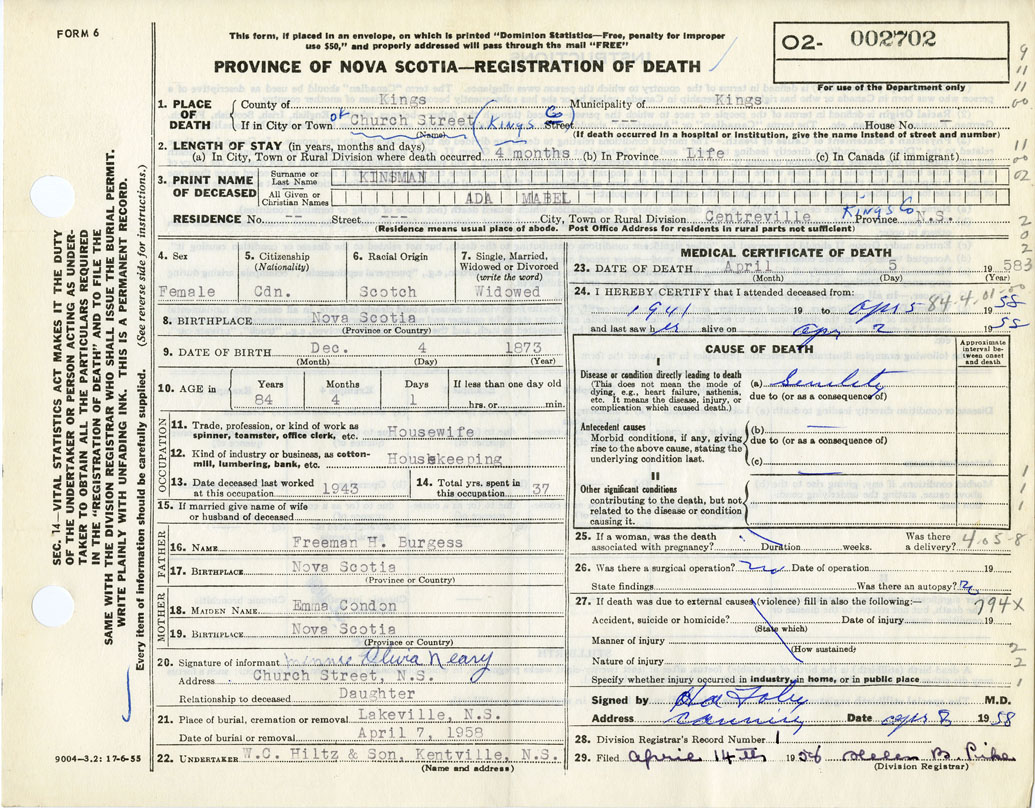 FORM 6
This form, if placed in an envelope, on which is printed "Dominion Statistics—Free, penalty for improper
use $50," and properly addressed will pass through the mail "FREE"
PROVINCE OF NOVA SCOTIA—REGISTRATION OF DEATH
02- 002702
For use of the Department only
1. PLACE OF DEATH
County of Kings Municipality of Kings
If in City or Town of Church Street (Kings Co Street --- House No. —
(Name) (If death occurred in a hospital or institution, give the name instead of street and number)
2. LENGTH OF STAY (in years, months and days)
(a) In City, Town or Rural Division where death occurred 4 months (b) In Province Life (c) In Canada (if immigrant)
3. PRINT NAME OF DECEASED
Surname or Last Name KINSMAN
All Given or Christian Names ADA MABEL
RESIDENCE No. -- Street --- City, Town or Rural Division Centreville Kings Co Province N.S.
(Residence means usual place of abode. Post Office Address for residents in rural parts not sufficient)
4. Sex
Female
5. Citizenship
(Nationality)
Cdn.
6. Racial Origin
Scotch
7. Single, Married,
Widowed or Divorced
(write the word)
Widowed
8. BIRTHPLACE Nova Scotia
(Province or Country)
9. DATE OF BIRTH Dec. 4 1873
(Month) (Day) (Year)
10. AGE in
Years Months Days If less than one day old
84 4 1 hrs. or min.
OCCUPATION
11. Trade, profession, or kind of work as
spinner, teamster, office clerk, etc. Housewife
12. Kind of industry or business, as cotton-
mill, lumbering, bank, etc. Housekeeping
13. Date deceased last worked
at this occupation 1943
14. Total yrs. spent in
this occupation 37
15. If married give name of wife
or husband of deceased
FATHER
16. NAME Freeman H. Burgess
17. BIRTHPLACE Nova Scotia
(Province or Country)
MOTHER
18. MAIDEN NAME Emma Condon
19. BIRTHPLACE Nova Scotia
(Province or Country)
20. Signature of informant Minnie Olivia Neary
Address Church Street, N.S.
Relationship to deceased Daughter
21. Place of burial, cremation or removal Lakeville, N.S.
Date of burial or removal April 7, 1958
22. UNDERTAKER W.C. Hiltz & Son, Kentville, N.S.
(Name and address)
MEDICAL CERTIFICATE OF DEATH
23. DATE OF DEATH April 5 19583
(Month) (Day) (Year)
24. I HEREBY CERTIFY that I attended deceased from:
1941 19 to apr 5 84.4.01-00 1958
and last saw her alive on apr 2 1958
CAUSE OF DEATH
Approximate
interval be-
tween onset
and death
I
Disease or condition directly leading to death
(This does not mean the mode of
dying, e.g., heart failure, asthenia,
etc. It means the disease, injury, or
complication which caused death.)
(a) Senility
due to (or as a consequence of)
Antecedent causes
Morbid conditions, if any, giving
rise to the above cause, stating the
underlying condition last.
(b) —
due to (or as a consequence of)
(c) —
II
Other significant conditions
contributing to the death, but not
related to the disease or condition
causing it.
25. If a woman, was the death
associated with pregnancy? Duration weeks. Was there
a delivery? 4.05-8
26. Was there a surgical operation? no Date of operation 19
State findings Was there an autopsy? no
27. If death was due to external causes (violence) fill in also the following:— 794X
Accident, suicide or homicide? Date of injury 19
(State which)
Manner of injury
(How sustained)
Nature of injury
Specify whether injury occurred in industry, in home, or in public place
Signed by M.D.
Address Canning Date apr 8 1958
28. Division Registrar's Record Number 1
29. Filed April 14th 1958 Helen B. Pike
(Division Registrar)
SEC. 14. VITAL STATISTICS ACT MAKES IT THE DUTY
OF THE UNDERTAKER OR PERSON ACTING AS UNDER-
TAKER TO OBTAIN ALL THE PARTICULARS REQUIRED
IN THE "REGISTRATION OF DEATH" AND TO FILE THE
SAME WITH THE DIVISION REGISTRAR WHO SHALL ISSUE THE BURIAL PERMIT.
WRITE PLAINLY WITH UNFADING INK. THIS IS A PERMANENT RECORD.
Every item of information should be carefully supplied. (See reverse side for instructions.)
9004—3.2: 17-6-55
9
11
00
11
00
02
2
0
2
1
1
1
2
1